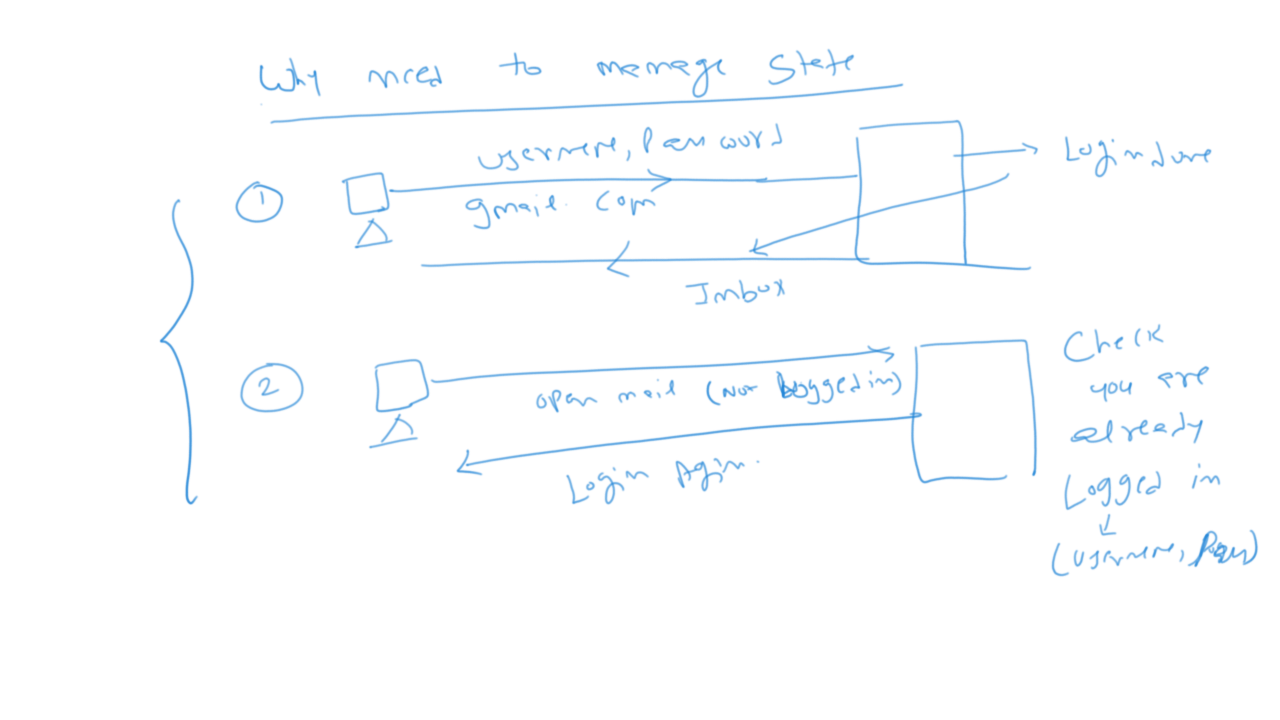 Why need to manage State
username, Password
gmail. com
Login done
Inbox
1
2
open mail (Not Logged in)
Login Agin.
Check
you are
already
Logged in
(username, Pass)